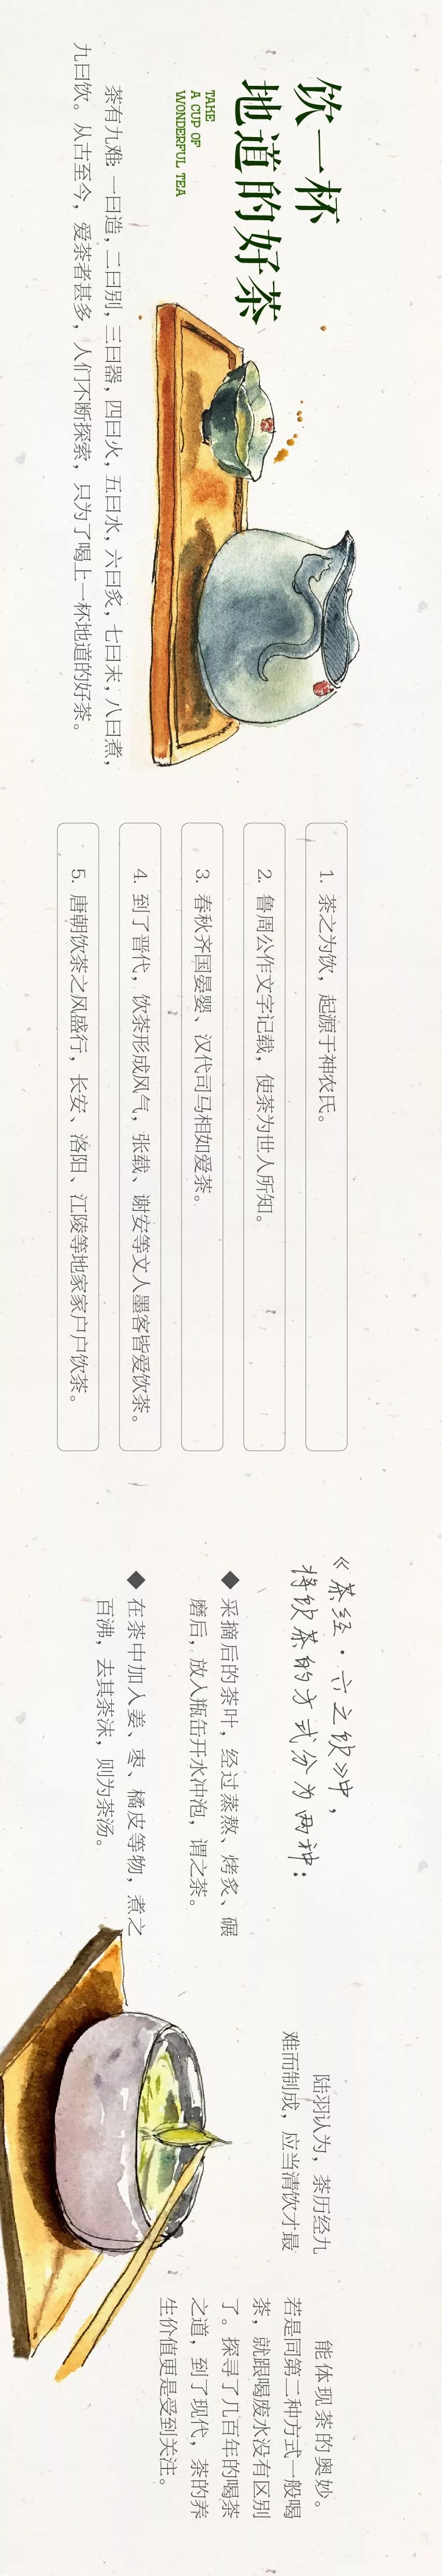 饮一杯
地道的好茶
TAKE
A CUP OF
WONDERFUL TEA
茶有九难:一曰造，二曰别，三曰器，四曰火，五曰水，六曰炙，七曰末，八曰煮，
九曰饮。从古至今，爱茶者甚多，人们不断探索，只为了喝上一杯地道的好茶。
1. 茶之为饮，起源于神农氏。
2. 鲁周公作文字记载，使茶为世人所知。
3. 春秋齐国晏婴、汉代司马相如爱茶。
4. 到了晋代，饮茶形成风气，张载、谢安等文人墨客皆爱饮茶。
5. 唐朝饮茶之风盛行，长安、洛阳、江陵等地家家户户饮茶。
《茶经·六之饮》中，
将饮茶的方式分为两种：
◆ 采摘后的茶叶，经过蒸熬、烤炙、碾
磨后，放入瓶缶开水冲泡，谓之茶。
◆ 在茶中加入姜、枣、橘皮等物，煮之
百沸，去其茶沫，则为茶汤。
陆羽认为，茶历经九
难而制成，应当清饮才最
能体现茶的奥妙。
若是同第二种方式一般喝
茶，就跟喝废水没有区别
了。探寻了几百年的喝茶
之道，到了现代，茶的养
生价值更是受到关注。